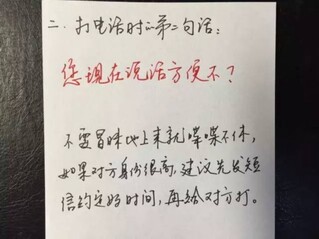 二.打电话时的第二句话:
您现在说话方便不?
不要冒昧地上来就喋喋不休,
如果对方身份很高,建议先发短
信约定好时间,再给对方打。